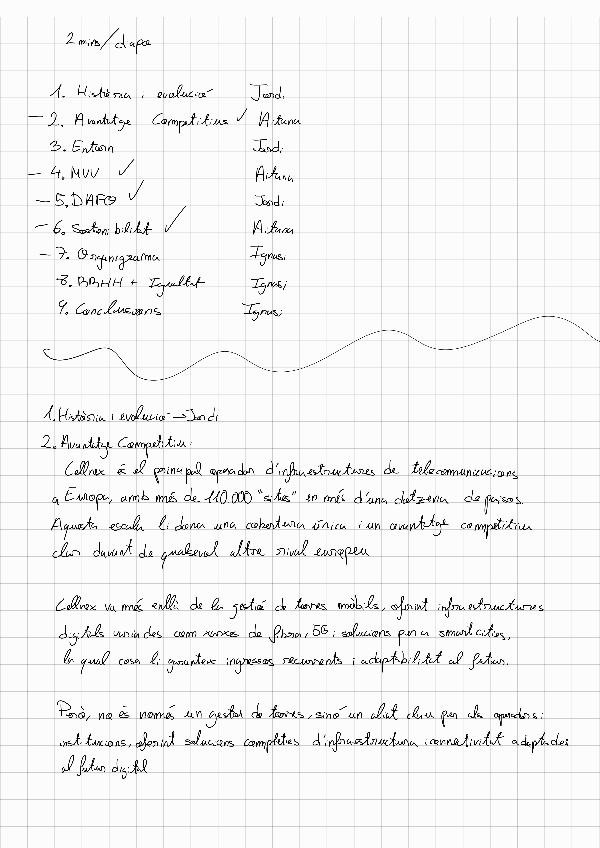 2 mins/diapo
1. Història i evolució Jordi
- 2. Avantatge Competitiu ✓ Aitana
3. Entorn Jordi
- 4. MVV ✓ Aitana
- 5. DAFO ✓ Jordi
- 6. Sostenibilitat ✓ Aitana
- 7. Organigrama Ignasi
8. RRHH + Igualtat Ignasi
9. Conclusions Ignasi
1. Història i evolució → Jordi
2. Avantatge Competitiu:
Cellnex és el principal operador d'infraestructures de telecomunicacions
a Europa, amb més de 110.000 "sites" en més d'una dotzena de països.
Aquesta escala li dona una cobertura única i un avantatge competitiu
clar davant de qualsevol altre rival europeu
Cellnex va més enllà de la gestió de torres mòbils, oferint infraestructures
digitals variades com xarxes de fibra, 5G i solucions per a smart cities,
la qual cosa li garanteix ingressos recurrents i adaptabilitat al futur.
Però, no és només un gestor de torres, sinó un aliat clau per als operadors i
institucions, oferint solucions completes d'infraestructura i connectivitat adaptades
al futur digital